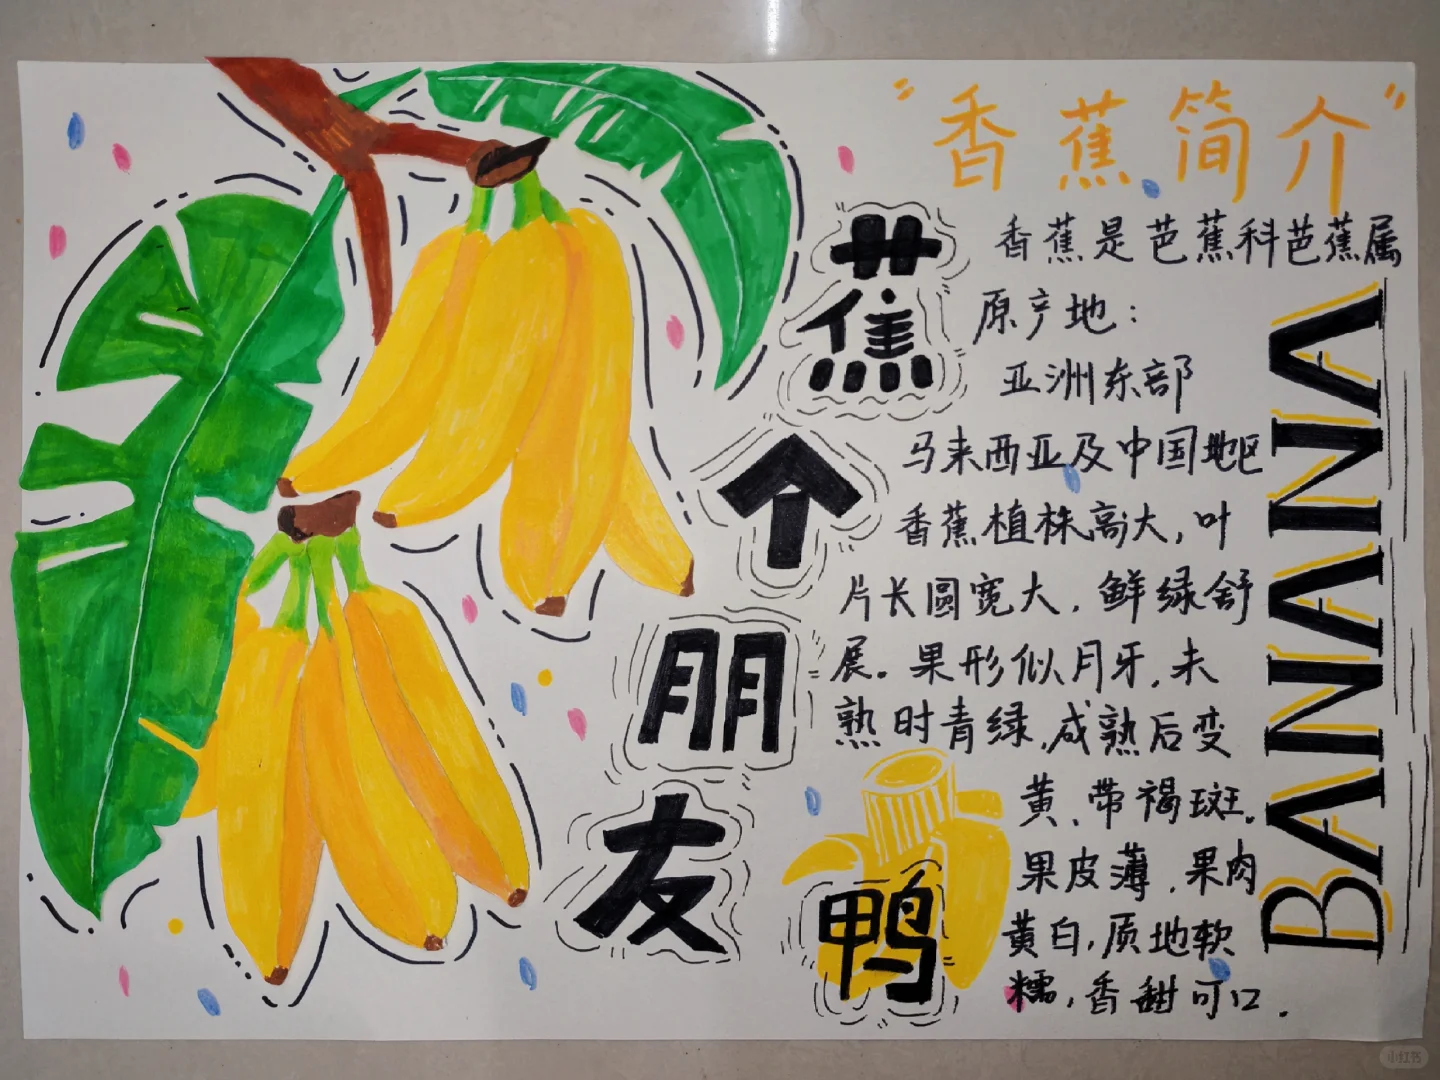 "香蕉简介"
香蕉是芭蕉科芭蕉属
原产地：
亚洲东部
马来西亚及中国地区
香蕉植株高大，叶
片长圆宽大，鲜绿舒
展。果形似月牙，未
熟时青绿，成熟后变
黄、带褐斑。
果皮薄，果肉
黄白，质地软
糯，香甜可口.
蕉
个
朋
友
鸭
BANANA
小红书